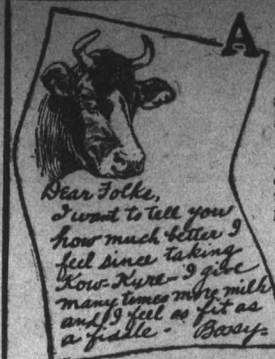 A
Dear Folks,
I want to tell you
how much better I
feel since taking
Kow-Kure - I give
many times more milk
and I feel as fit as
a fiddle - Bossy-